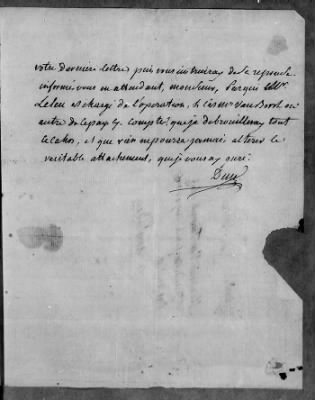 votre derniere lettre puis vous instruiray de la reponse
informé vous en attendant, monsieur, par qui Mr
Leleu est chargé de l'operation, si c'est Mr Van
autre de le pays. compté que je debrouilleray tout
le cahos, et que rien ne pourra jamais alterer le
veritable attachement, que je vous ay juré.